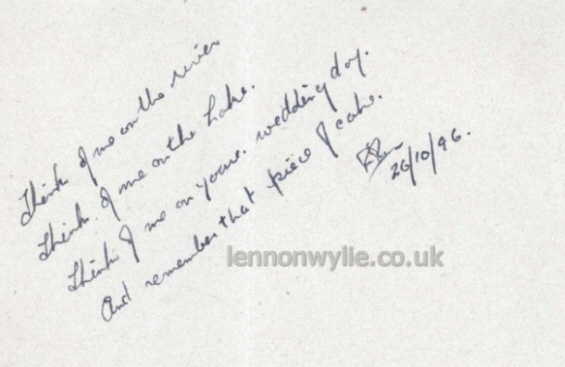 Think of me on the river
Think. of me on the Lake.
Think of me on youre. wedding day.
And remember that piece of cake.
26/10/96.
lennonwylie.co.uk